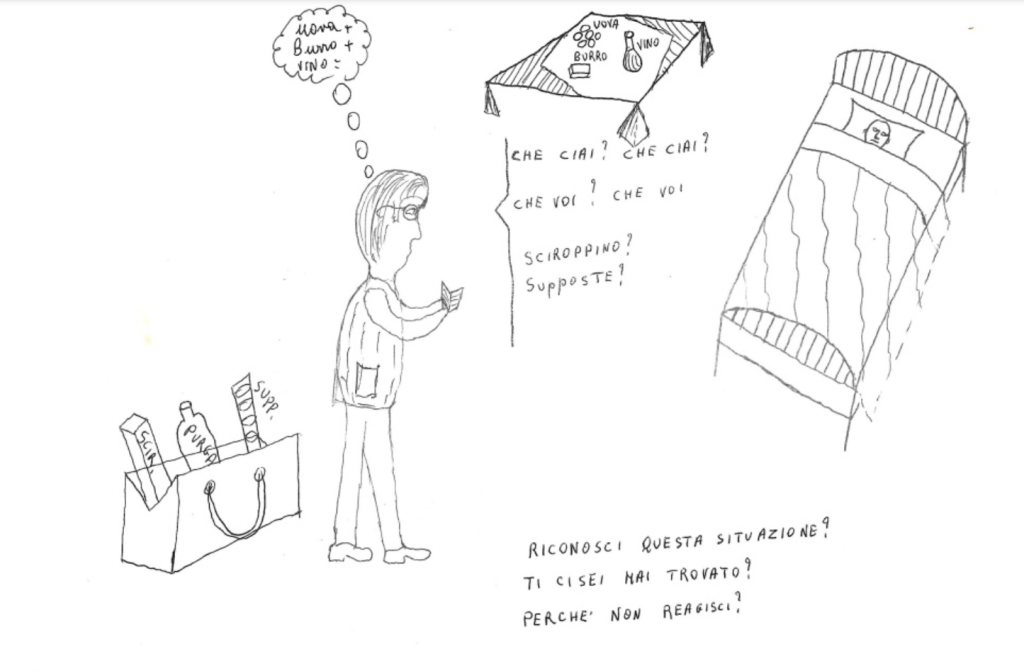 Uova +
Burro +
VINO =
UOVA
VINO
BURRO
CHE CIAI? CHE CIAI?
CHE VOI? CHE VOI
SCIROPPINO?
SUPPOSTE?
SCIR.
PURGA
SUPP.
RICONOSCI QUESTA SITUAZIONE?
TI CI SEI MAI TROVATO?
PERCHE' NON REAGISCI?